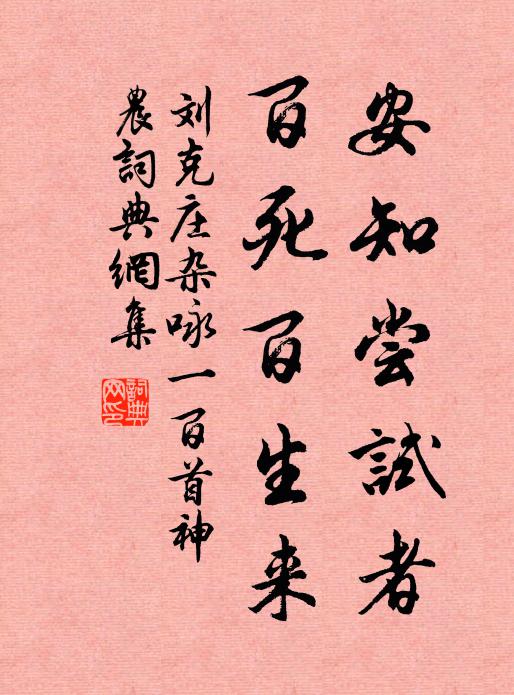 安知尝試者
百死百生来
刘克庄杂咏一百首神
農詞典網集
詞典网印